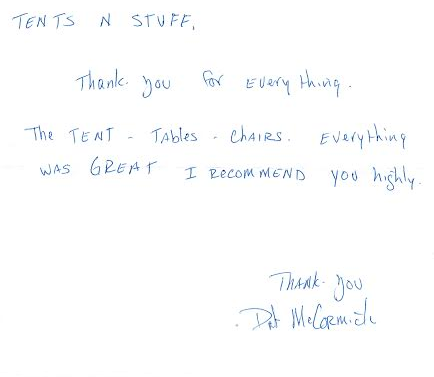 TENTS N STUFF,
Thank you for Everything.
The TENT - TAbles - CHAIRS. Everything
WAS GREAT I RECOMMEND you highly.
THANK you
McCormick